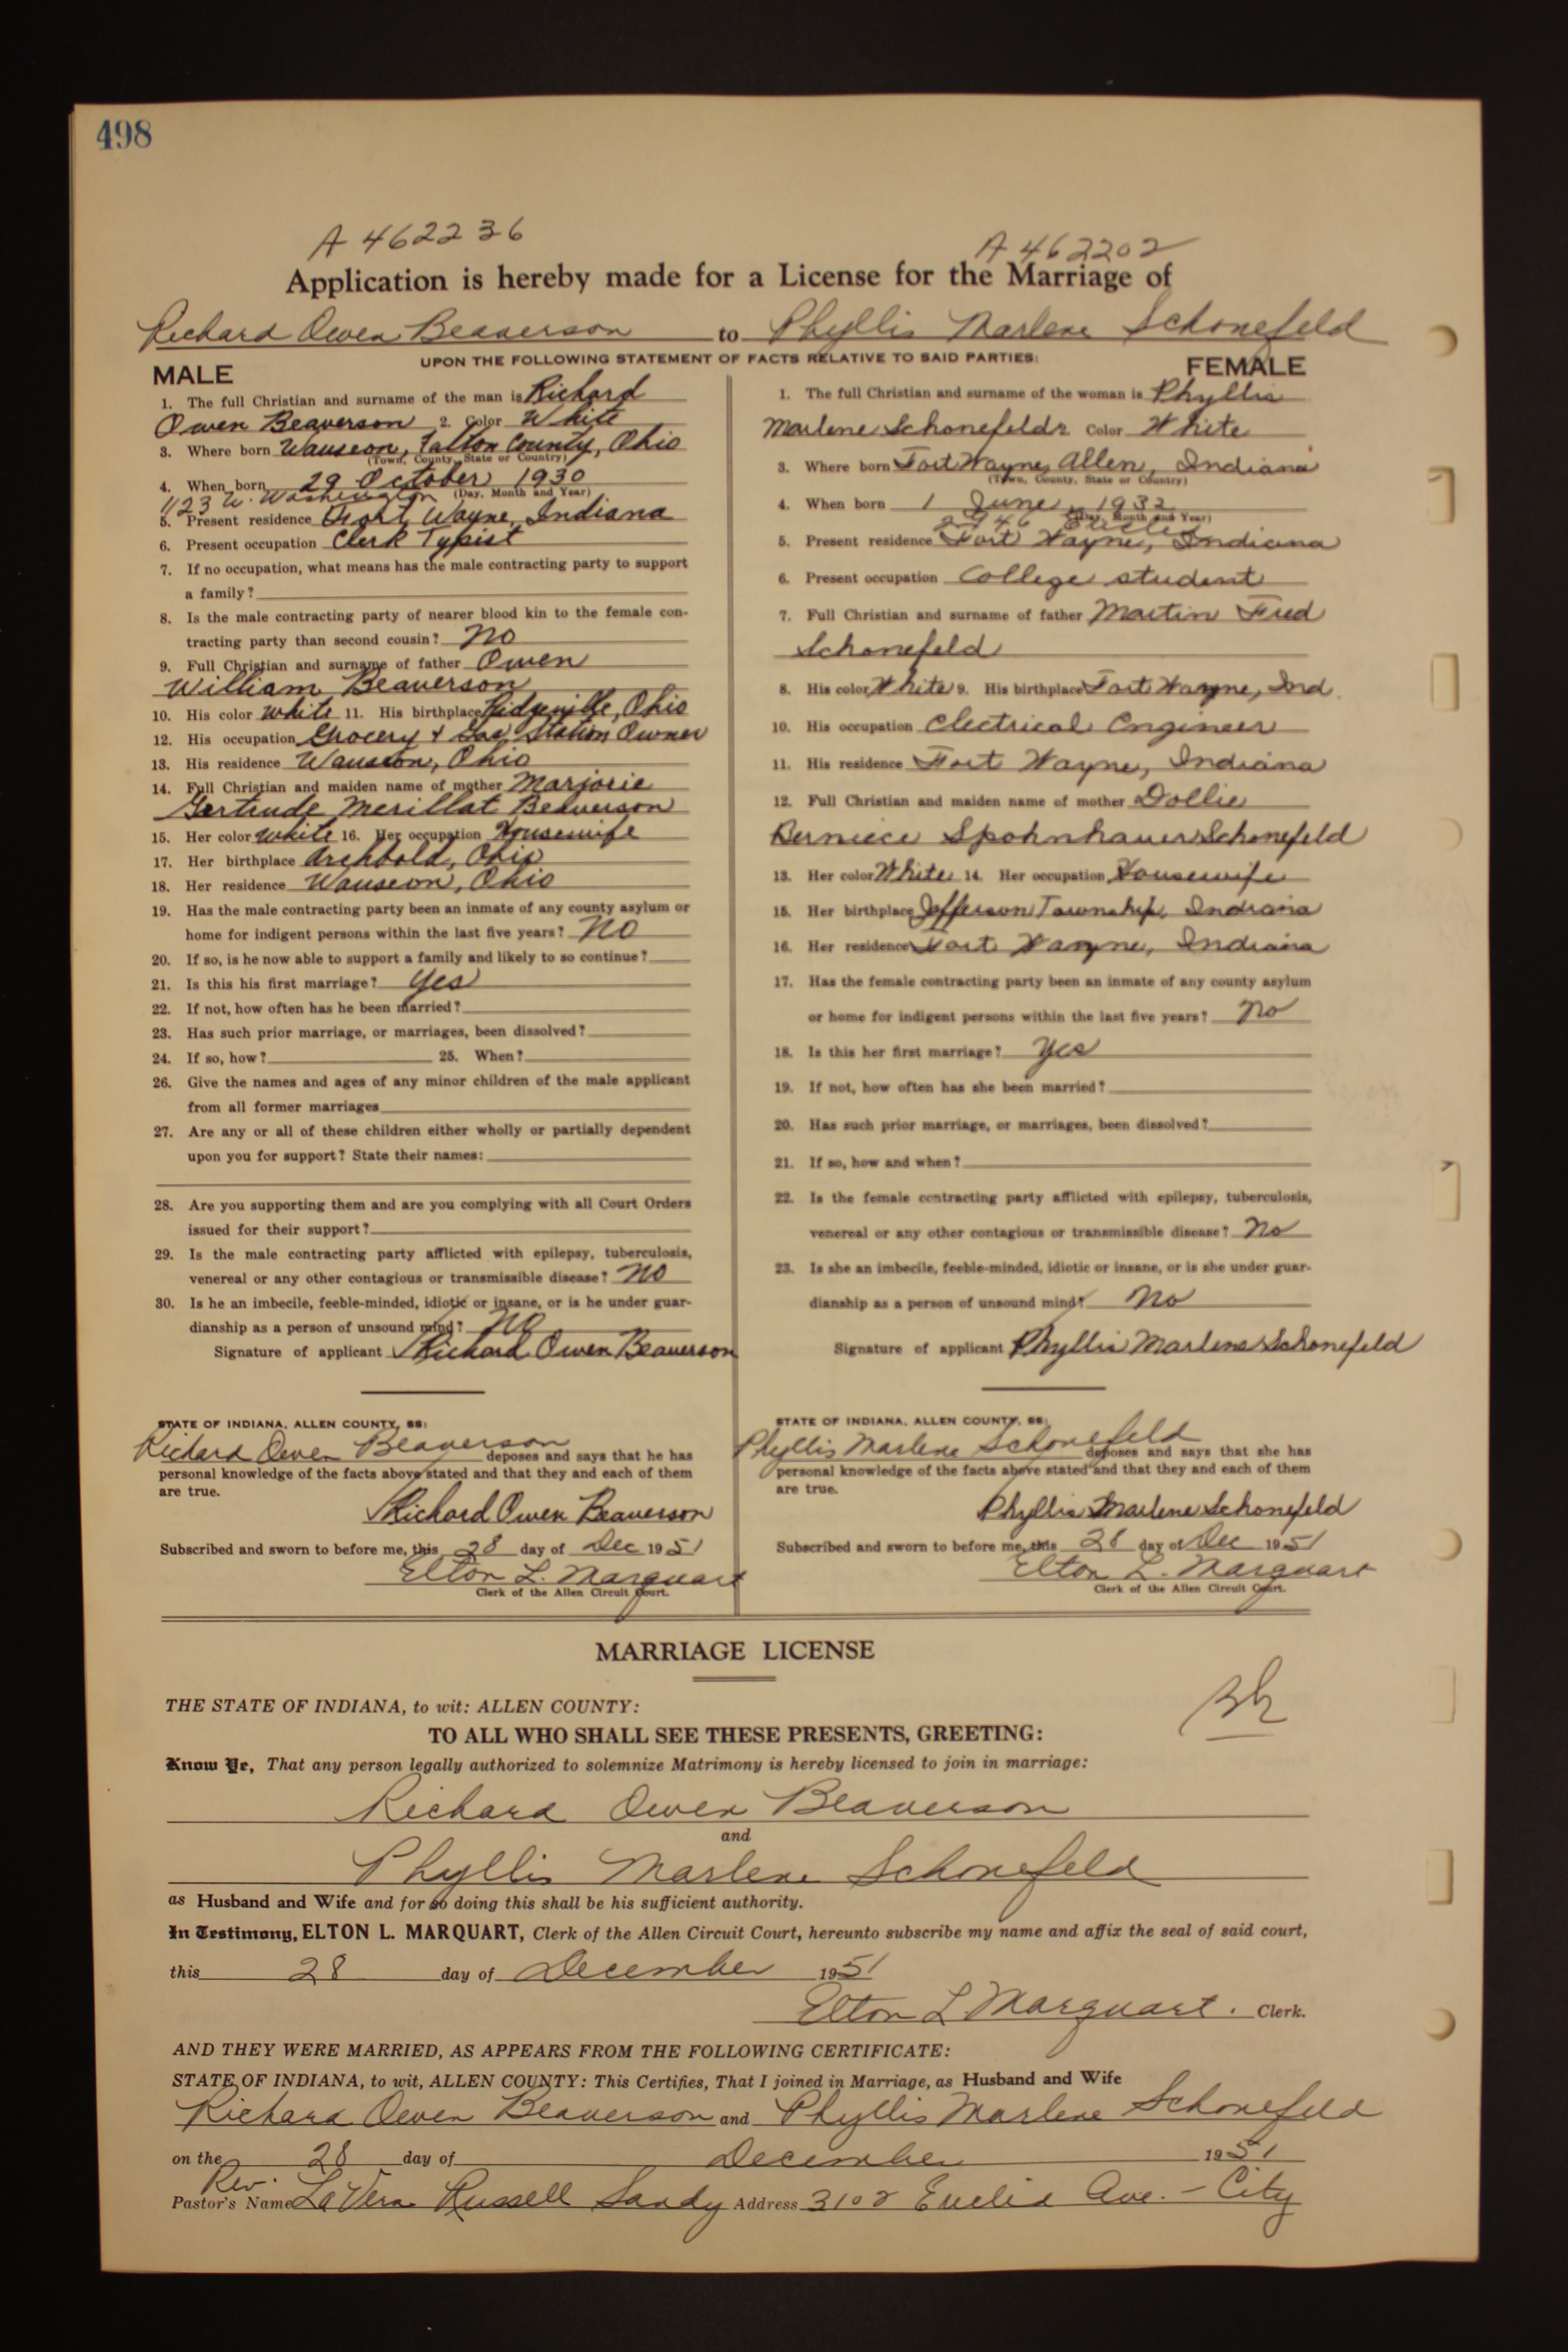 498
A 462236
A 462202
Application is hereby made for a License for the Marriage of
Richard Owen Beaverson to Phyllis Marlene Schonefeld
UPON THE FOLLOWING STATEMENT OF FACTS RELATIVE TO SAID PARTIES:
MALE
1. The full Christian and surname of the man is Richard
Owen Beaverson 2. Color White
3. Where born Wauseon, Fulton County, Ohio
(Town, County, State or Country)
4. When born 29 October 1930
(Day, Month and Year)
1123 W. Washington
5. Present residence Fort Wayne, Indiana
6. Present occupation Clerk Typist
7. If no occupation, what means has the male contracting party to support
a family?
8. Is the male contracting party of nearer blood kin to the female con-
tracting party than second cousin? No
9. Full Christian and surname of father Owen
William Beaverson
10. His color white 11. His birthplace Ridgeville, Ohio
12. His occupation Grocery & Gas Station Owner
13. His residence Wauseon, Ohio
14. Full Christian and maiden name of mother Marjorie
Gertrude Merillat Beaverson
15. Her color white 16. Her occupation Housewife
17. Her birthplace Archbold, Ohio
18. Her residence Wauseon, Ohio
19. Has the male contracting party been an inmate of any county asylum or
home for indigent persons within the last five years? No
20. If so, is he now able to support a family and likely to so continue?
21. Is this his first marriage? Yes
22. If not, how often has he been married?
23. Has such prior marriage, or marriages, been dissolved?
24. If so, how? 25. When?
26. Give the names and ages of any minor children of the male applicant
from all former marriages
27. Are any or all of these children either wholly or partially dependent
upon you for support? State their names:
28. Are you supporting them and are you complying with all Court Orders
issued for their support?
29. Is the male contracting party afflicted with epilepsy, tuberculosis,
venereal or any other contagious or transmissible disease? No
30. Is he an imbecile, feeble-minded, idiotic or insane, or is he under guar-
dianship as a person of unsound mind? No
Signature of applicant Richard Owen Beaverson
STATE OF INDIANA, ALLEN COUNTY, SS:
Richard Owen Beaverson deposes and says that he has
personal knowledge of the facts above stated and that they and each of them
are true.
Richard Owen Beaverson
Subscribed and sworn to before me, this 28 day of Dec 1951
Elton L. Marquart
Clerk of the Allen Circuit Court.
FEMALE
1. The full Christian and surname of the woman is Phyllis
Marlene Schonefeld 2. Color White
3. Where born Fort Wayne, Allen, Indiana
(Town, County, State or Country)
4. When born 1 June, 1932
(Day, Month and Year)
2946
5. Present residence Fort Wayne, Indiana
6. Present occupation College student
7. Full Christian and surname of father Martin Fred
Schonefeld
8. His color White 9. His birthplace Fort Wayne, Ind.
10. His occupation Electrical Engineer
11. His residence Fort Wayne, Indiana
12. Full Christian and maiden name of mother Dollie
Berniece Spohnhauer Schonefeld
13. Her color White 14. Her occupation Housewife
15. Her birthplace Jefferson Township, Indiana
16. Her residence Fort Wayne, Indiana
17. Has the female contracting party been an inmate of any county asylum
or home for indigent persons within the last five years? No
18. Is this her first marriage? Yes
19. If not, how often has she been married?
20. Has such prior marriage, or marriages, been dissolved?
21. If so, how and when?
22. Is the female contracting party afflicted with epilepsy, tuberculosis,
venereal or any other contagious or transmissible disease? No
23. Is she an imbecile, feeble-minded, idiotic or insane, or is she under guar-
dianship as a person of unsound mind? No
Signature of applicant Phyllis Marlene Schonefeld
STATE OF INDIANA, ALLEN COUNTY, SS:
Phyllis Marlene Schonefeld deposes and says that she has
personal knowledge of the facts above stated and that they and each of them
are true.
Phyllis Marlene Schonefeld
Subscribed and sworn to before me, this 28 day of Dec 1951
Elton L. Marquart
Clerk of the Allen Circuit Court.
MARRIAGE LICENSE
THE STATE OF INDIANA, to wit: ALLEN COUNTY:
TO ALL WHO SHALL SEE THESE PRESENTS, GREETING:
Know Ye, That any person legally authorized to solemnize Matrimony is hereby licensed to join in marriage:
Richard Owen Beaverson
and
Phyllis Marlene Schonefeld
as Husband and Wife and for so doing this shall be his sufficient authority.
In Testimony, ELTON L. MARQUART, Clerk of the Allen Circuit Court, hereunto subscribe my name and affix the seal of said court,
this 28 day of December 1951
Elton L Marquart. Clerk.
AND THEY WERE MARRIED, AS APPEARS FROM THE FOLLOWING CERTIFICATE:
STATE OF INDIANA, to wit, ALLEN COUNTY: This Certifies, That I joined in Marriage, as Husband and Wife
Richard Owen Beaverson and Phyllis Marlene Schonefeld
on the 28 day of December 1951
Rev.
Pastor's Name LaVern Russell Sandy Address 3102 Euclid Ave. - City